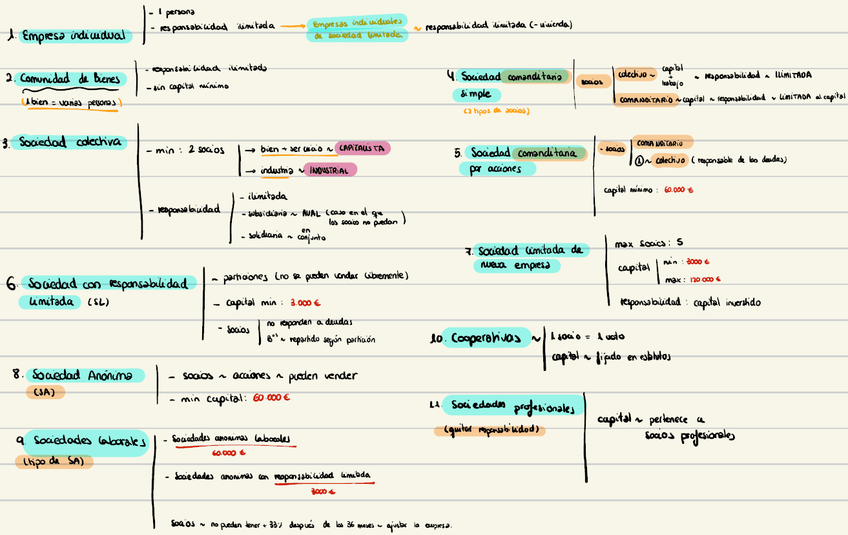 1. Empresa individual
- 1 persona
- responsabilidad ilimitada → Empresas individuales de sociedad limitada ~ responsabilidad ilimitada (- vivienda)
2. Comunidad de Bienes
(1 bien = varias personas)
- responsabilidad ilimitada
- sin capital mínimo
3. Sociedad colectiva
- min: 2 socios
→ bien + servicio ~ CAPITALISTA
→ industria ~ INDUSTRIAL
- responsabilidad
- ilimitada
- subsidiaria ~ AVAL (caso en el que los socios no puedan)
- solidiaria ~ en conjunto
4. Sociedad comanditaria
simple
(2 tipos de socios)
socios
colectivo ~ capital + trabajo ~ responsabilidad ~ ILIMITADA
COMANDITARIO ~ capital ~ responsabilidad ~ LIMITADA al capital
5. Sociedad comanditaria
por acciones
- socios
COMANDITARIO
① ~ colectivo (responsable de las deudas)
capital mínimo: 60.000 €
6. Sociedad con responsabilidad
limitada (SL)
- particiones (no se pueden vender libremente)
- capital min: 3.000 €
- socios
no responden a deudas
~ repartido según partición
7. Sociedad limitada de
nueva empresa
max socios: 5
capital
min: 3000 €
max: 120.000 €
responsabilidad: capital invertido
8. Sociedad Anónima
(SA)
- socios ~ acciones ~ pueden vender
- min capital: 60 000 €
9 Sociedades laborales
(tipo de SA)
- Sociedades anonimas laborales
60.000 €
- Sociedades anonimas con responsabilidad limitada
3000 €
socios ~ no pueden tener + 33% después de los 36 meses ~ ajustar la empresa.
10. Cooperativas ~
1 socio = 1 voto
capital ~ fijado en estatutos
11. Sociedades profesionales
(quitar responsabilidad)
capital ~ pertenece a
socios profesionales